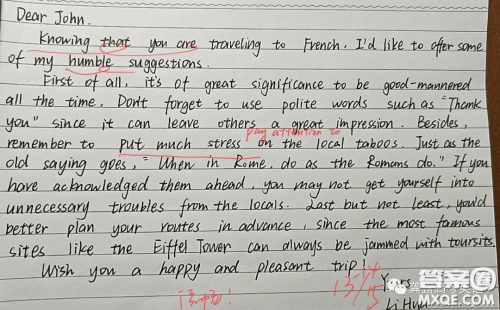 Dear John,
Knowing that you are traveling to French, I'd like to offer some
of my humble suggestions.
First of all, it's of great significance to be good-mannered
all the time. Don't forget to use polite words such as "Thank
you" since it can leave others a great impression. Besides,
pay attention to
remember to put much stress on the local taboos. Just as the
old saying goes, "When in Rome, do as the Romans do." If you
have acknowledged them ahead, you may not get yourself into
unnecessary troubles from the locals. Last but not least, you'd
better plan your routes in advance, since the most famous
sites like the Eiffel Tower can always be jammed with toursits.
Wish you a happy and pleasant trip!
Yours
Li Hua
答案圈
MXQE.COM